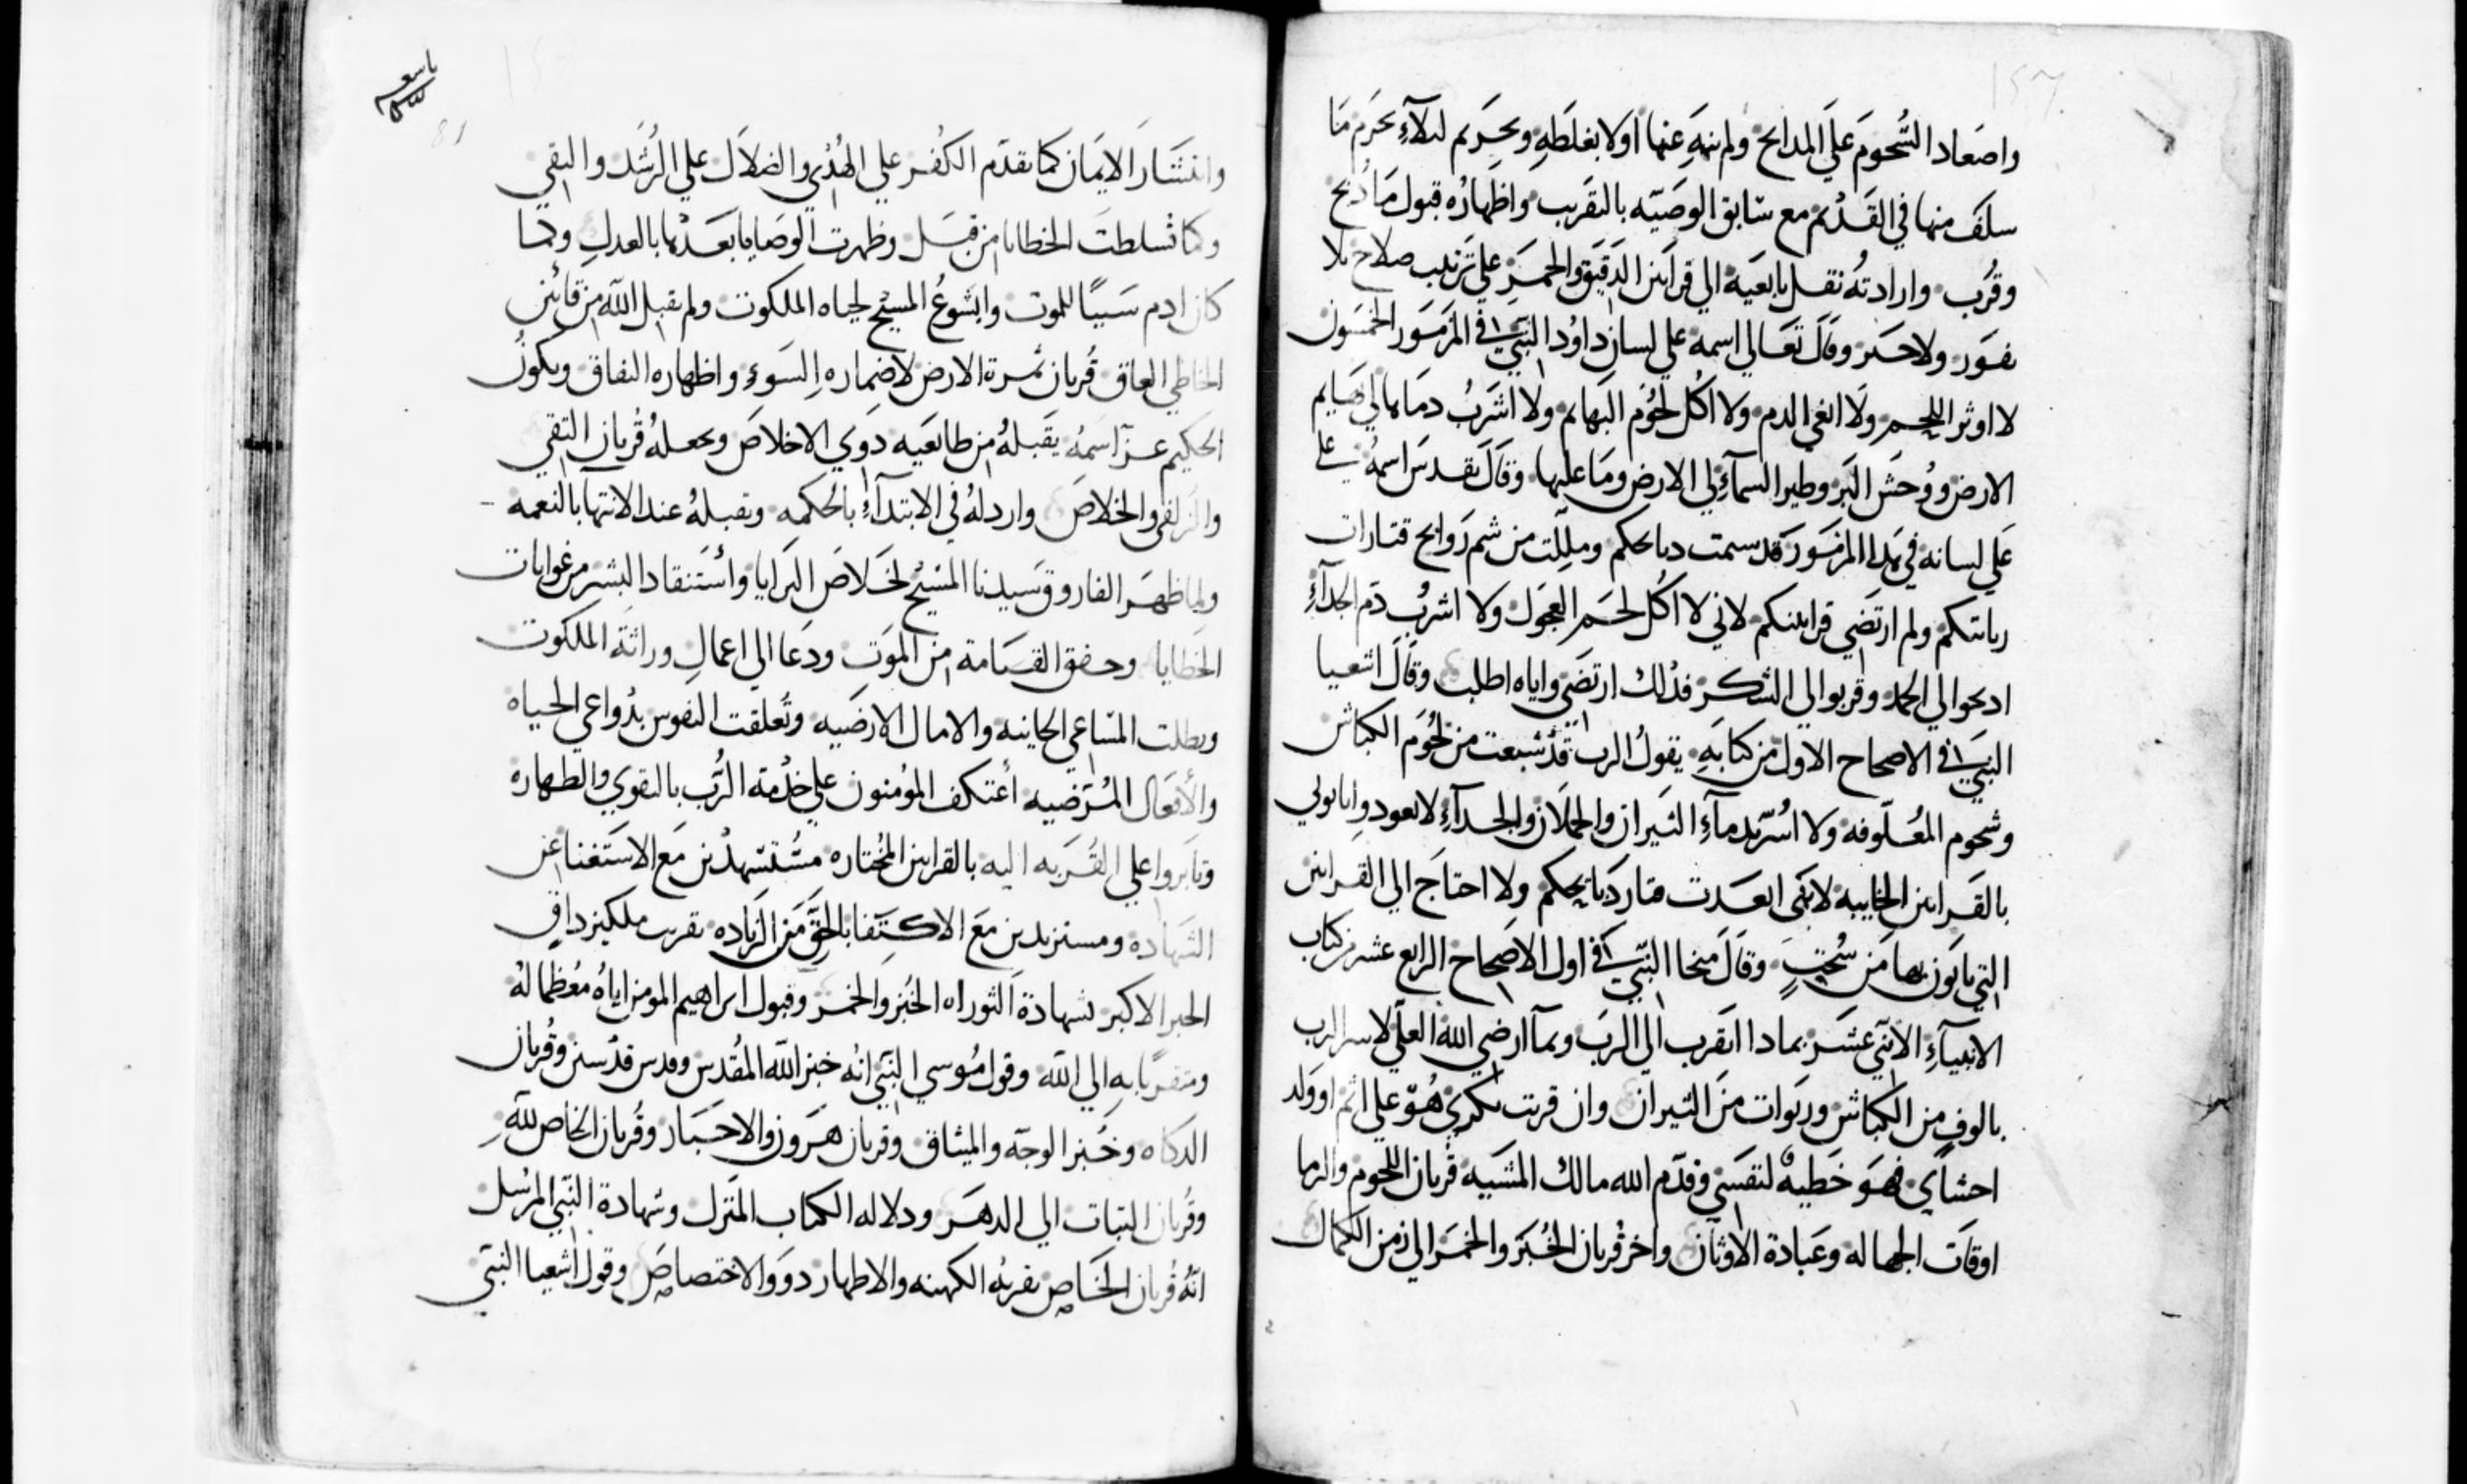 واصعاد الشحوم على المدابح ولم ينهَ عنها اولا بغلطهِ ويحرم لىلآءِ يحرم مَا
سلف منها في القديم مع سَابق الوصَيّه بالتقريب واظهاره قبول مَا دُبح
وقُرب وارادتهُ نقل تابعيه الي قرابين الدقيق والخمرِ علي ترتيب صلاح بلا
نفور ولا حسر وقال تعَالي اسمه علي لسان داوُد النَبيّ في المزمَور الخمسون
لا اوثر اللحم ولا الغي الدم ولا اكل لحُوم البهايم ولا اشربُ دمَاها لي بهَايم
الارض ووُحش البَر وطير السمآءِ لي الارض ومَا عليها وقال تقدسَ اسمهُ علي
عَلي لسانه في هدا المزمَور قد سيمت دبايحكم ومللت من شم رَوايح قتارات
رباتكم ولم ارتضي قرابينكم لاني لا اكُل لحم العجول ولا اشربُ دم الجدآءِ
ادبحوا لي الحمد وقربوا لي الشكر فدلك ارتضي واياه اطلب وقال اشعيا
النبيّ في الاصحاح الاول من كتابهِ يقول الرب قد شبعت من لحُوم الكباش
وشحوم المعُلوفه ولا اسُر بدمآءِ الثيران والحملان والجدآءِ لا تعودوا ياتوني
بالقرابين الخايبه لانني ابعدت قتار دبايحكم ولا احتاج الي القرابين
التي ياتون بها من سُحتٍ وقال ميخا النبيّ في اول الاصحاح الرابع عشر من كتاب
الانبيآءِ الاثني عشر بمادا اتقرب الي الربَ وبمآ ارضي الله العلي لا سر الرب
بالوفٍ من الكباش وربَوات من الثيران وان قربت بكري هُوّ علي اثم او ولد
احشاي فهوَ خطيه لنفسَي وقدّم الله مالك المشيه قربان اللحوم والدما
اوقات الجهاله وعبَادة الاوثان واخر قربان الخُبز والخمر الي زمن الكمال
وانتشار الايمَان كما تقدّم الكفُر علي الهُدي والضلال علي الرشد والتقي
وكما تسلطت الخطايا من قبل وظهرت الوصَايا بعَدها بالعدل وكما
كان ادم سَببًا للموت وايشوعُ المسيح لحياه الملكوت ولم يقبل الله من قائين
الخاطي العاق قُربان ثمرة الارض لاضماره السَوءِ واظهاره النفاق ويكونُ
الحكيم عزّ اسمهُ يقبلهُ من طايعَيه دوي الاخلاص ويجعلهُ قُربان التقي
والزلفي والخلاص واردلهُ في الابتدآءِ بالحكمه وتقبلهُ عند الانتها بالنعمه
ولما ظهر الفاروق سَيدنا المسَيح لخلاص البَرايا وأستنقاد البشر من غوايات
الخطايا وحقق القيامة من الموَت ودعَا الي اعمال وراثة الملكوت
وبطلت المسَاعي الخايبه والامال الارضَيه وتُعلقت النفوس بدُواعي الحياه
والأفعَال المُرَضيه أعتكف المؤمنون علي خدمة الرَب بالتقوي والطهاره
وثابروا علي القُربه اليه بالقرابين المختاره مسُتشهدْين مَع الاستغنا عن
الشهاده ومستزيدين معَ الاكتفا بالحق مَن الزياده بقرب ملكيزداق
الحبر الاكبر شهادة التوراه الخُبز والخمر وقبول ابراهيم المومن اياهُ معُظما لهُ
ومتقربًا بهِ الي الله وقول مُوسي النبّي انهُ خبز الله المُقدس وقدس قدّسين وقُربان
الدكاه وخُبز الوجه والميثاق وقربان هَرون والاحبَار وقُربان الخاص للهِ
وقُربان الثبات الي الدهَر ودلاله الكتاب المنَزل وشهادة النَبي المرسَل
انهُ قُربان الخاص يقربهُ الكهنه والاطهار دوو الاختصاص وقول اشعيا النبَي